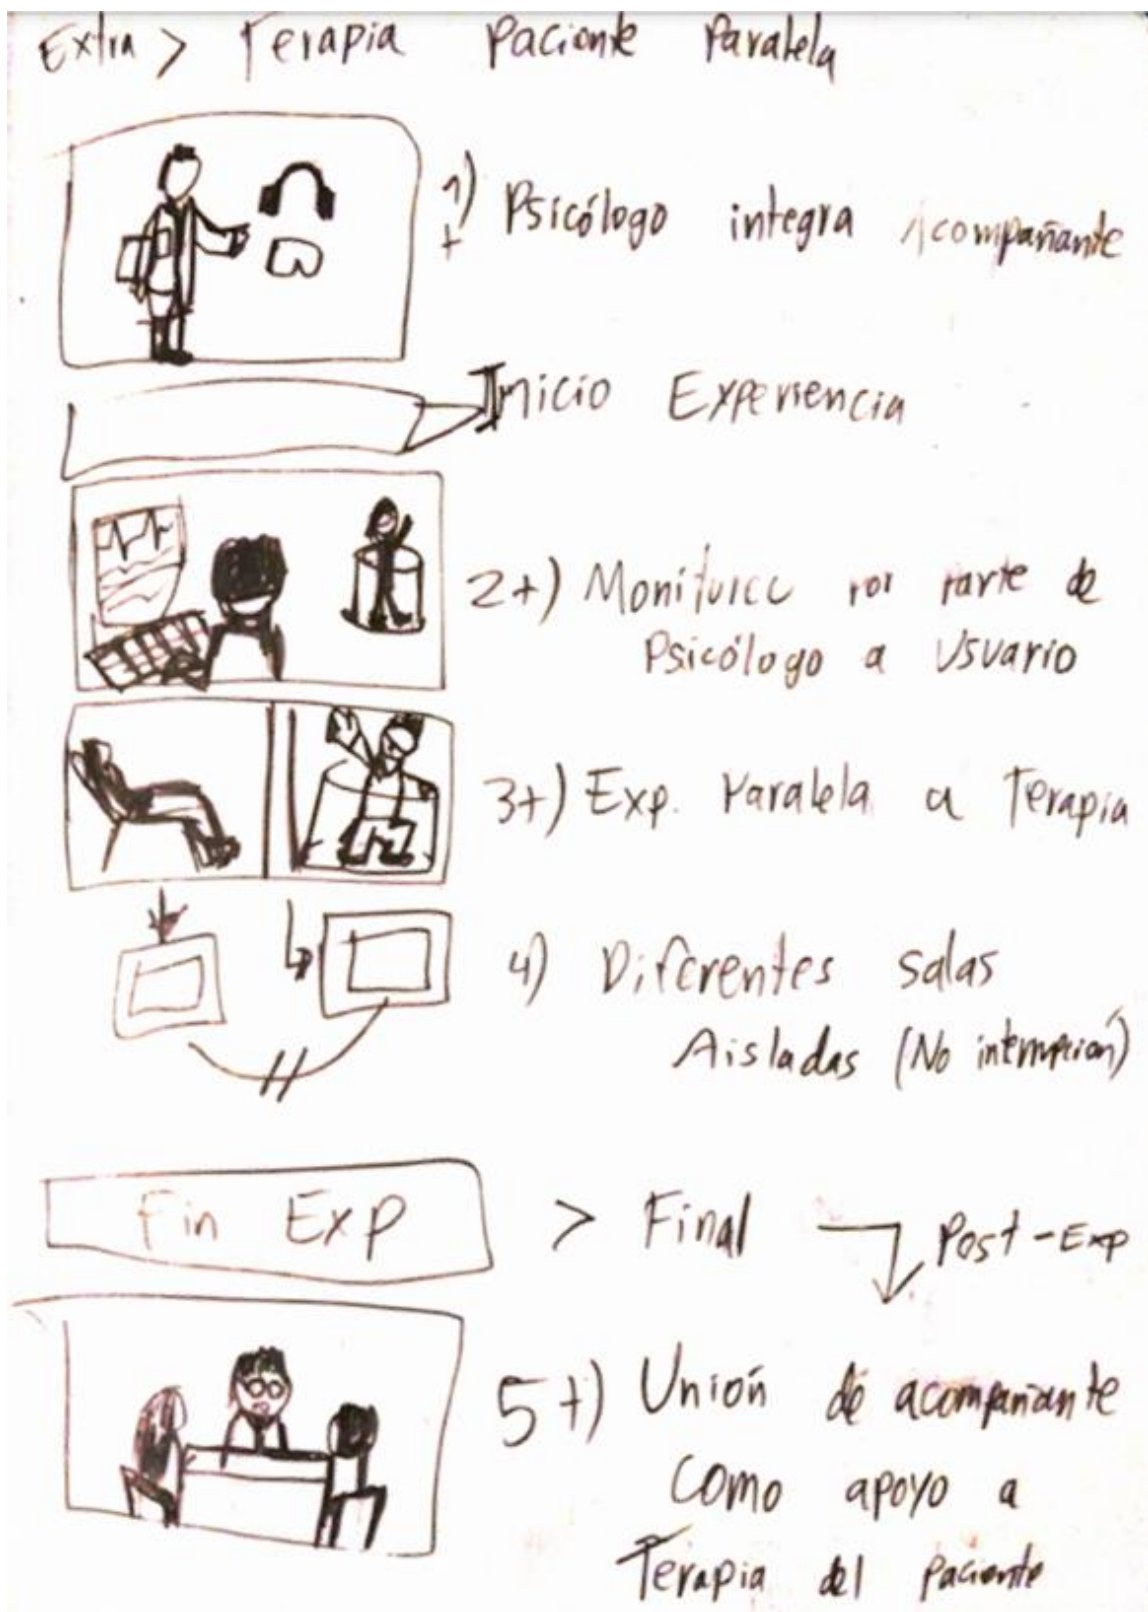 Extra > Terapia Paciente Paralela
1) Psicólogo integra Acompañante
+
Inicio Experiencia
2+) Monitoreo por parte de
Psicólogo a Usuario
3+) Exp. Paralela a Terapia
4) Diferentes salas
Aisladas (No interrupción)
Fin Exp > Final Post-Exp
5+) Unión de acompañante
como apoyo a
Terapia del paciente